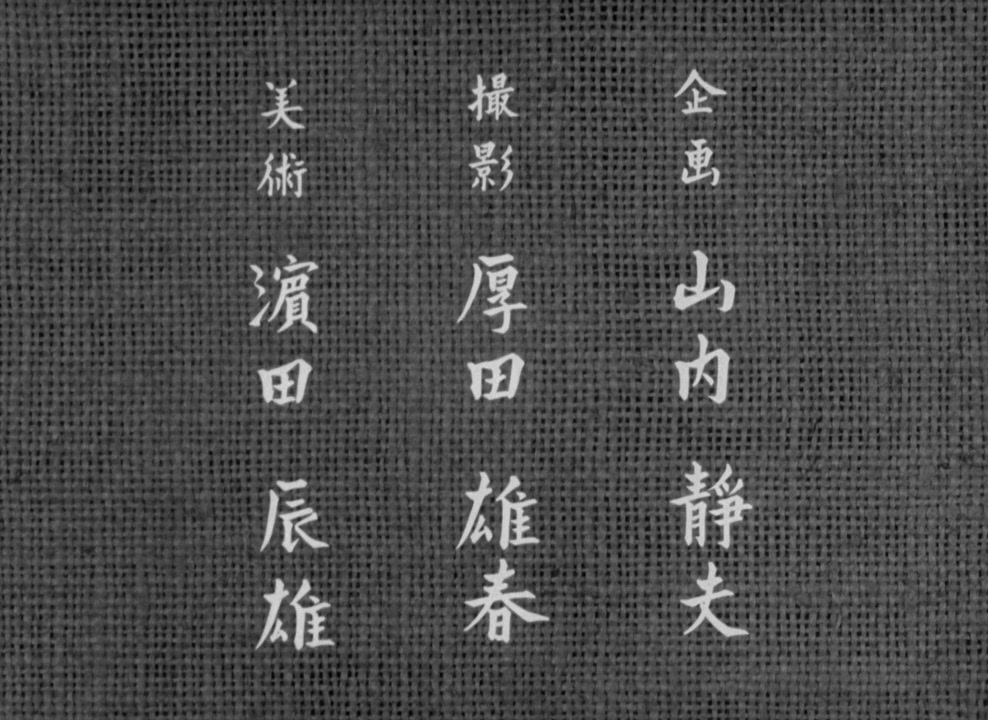 企画 山内静夫
撮影 厚田雄春
美術 濵田辰雄